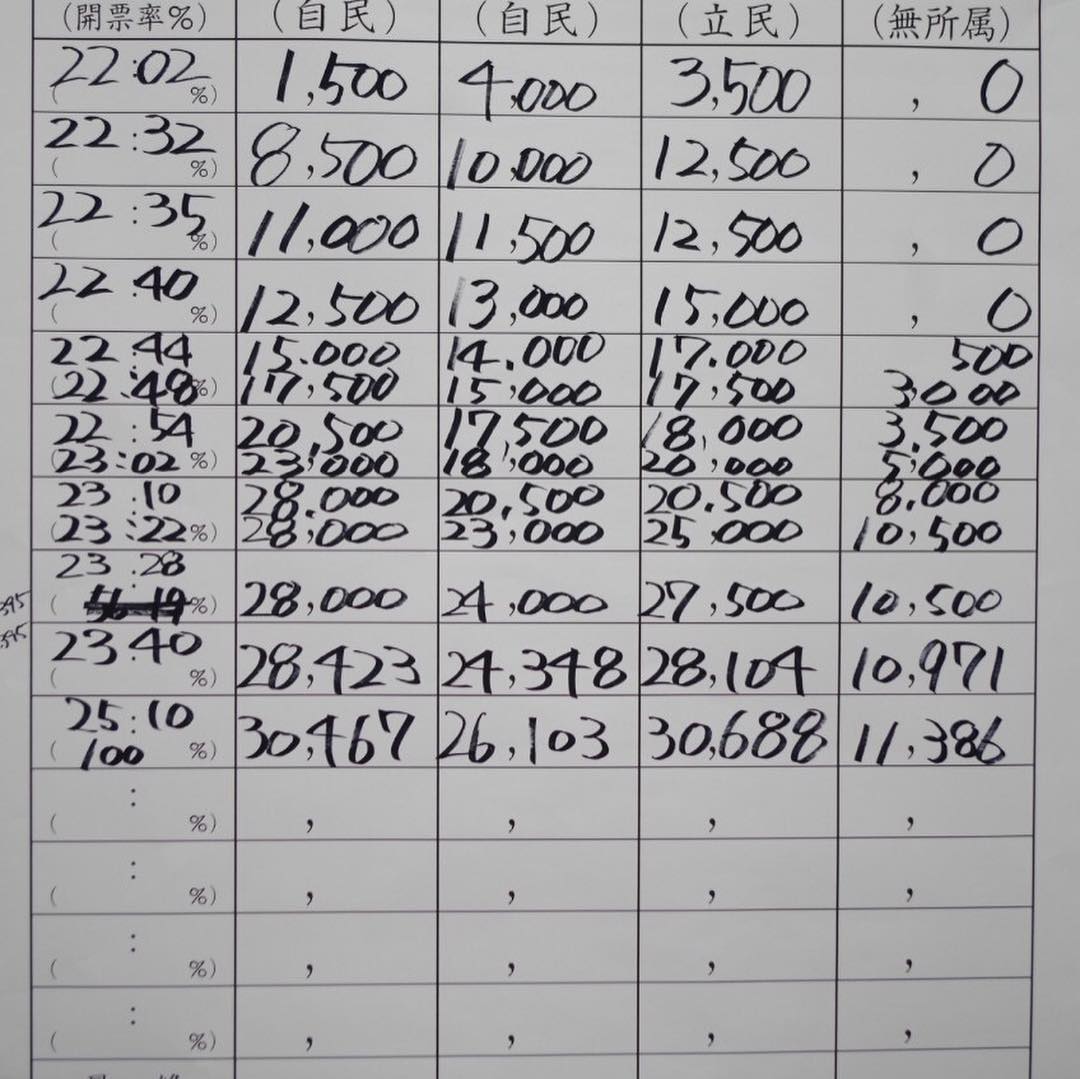 (開票率%) (自民) (自民) (立民) (無所属)
22:02 1,500 4,000 3,500 , 0
( %)
22:32 8,500 10,000 12,500 , 0
( %)
22:35 11,000 11,500 12,500 , 0
( %)
22:40 12,500 13,000 15,000 , 0
( %)
22:44 15.000 14.000 17.000 500
(22:48%) 17,500 15,000 17,500 3,000
22:54 20,500 17,500 18,000 3,500
(23:02 %) 23,000 18,000 20,000 5,000
23:10 28.000 20,500 20.500 8.000
(23:22%) 28,000 23,000 25,000 10,500
23:28
( %) 28,000 24,000 27,500 10,500
23:40 28,423 24,348 28,104 10,971
( %)
25:10 30,467 26,103 30,688 11,386
( 100 %)
:
( %) , , , ,
:
( %) , , , ,
:
( %) , , , ,
:
( %) , , , ,